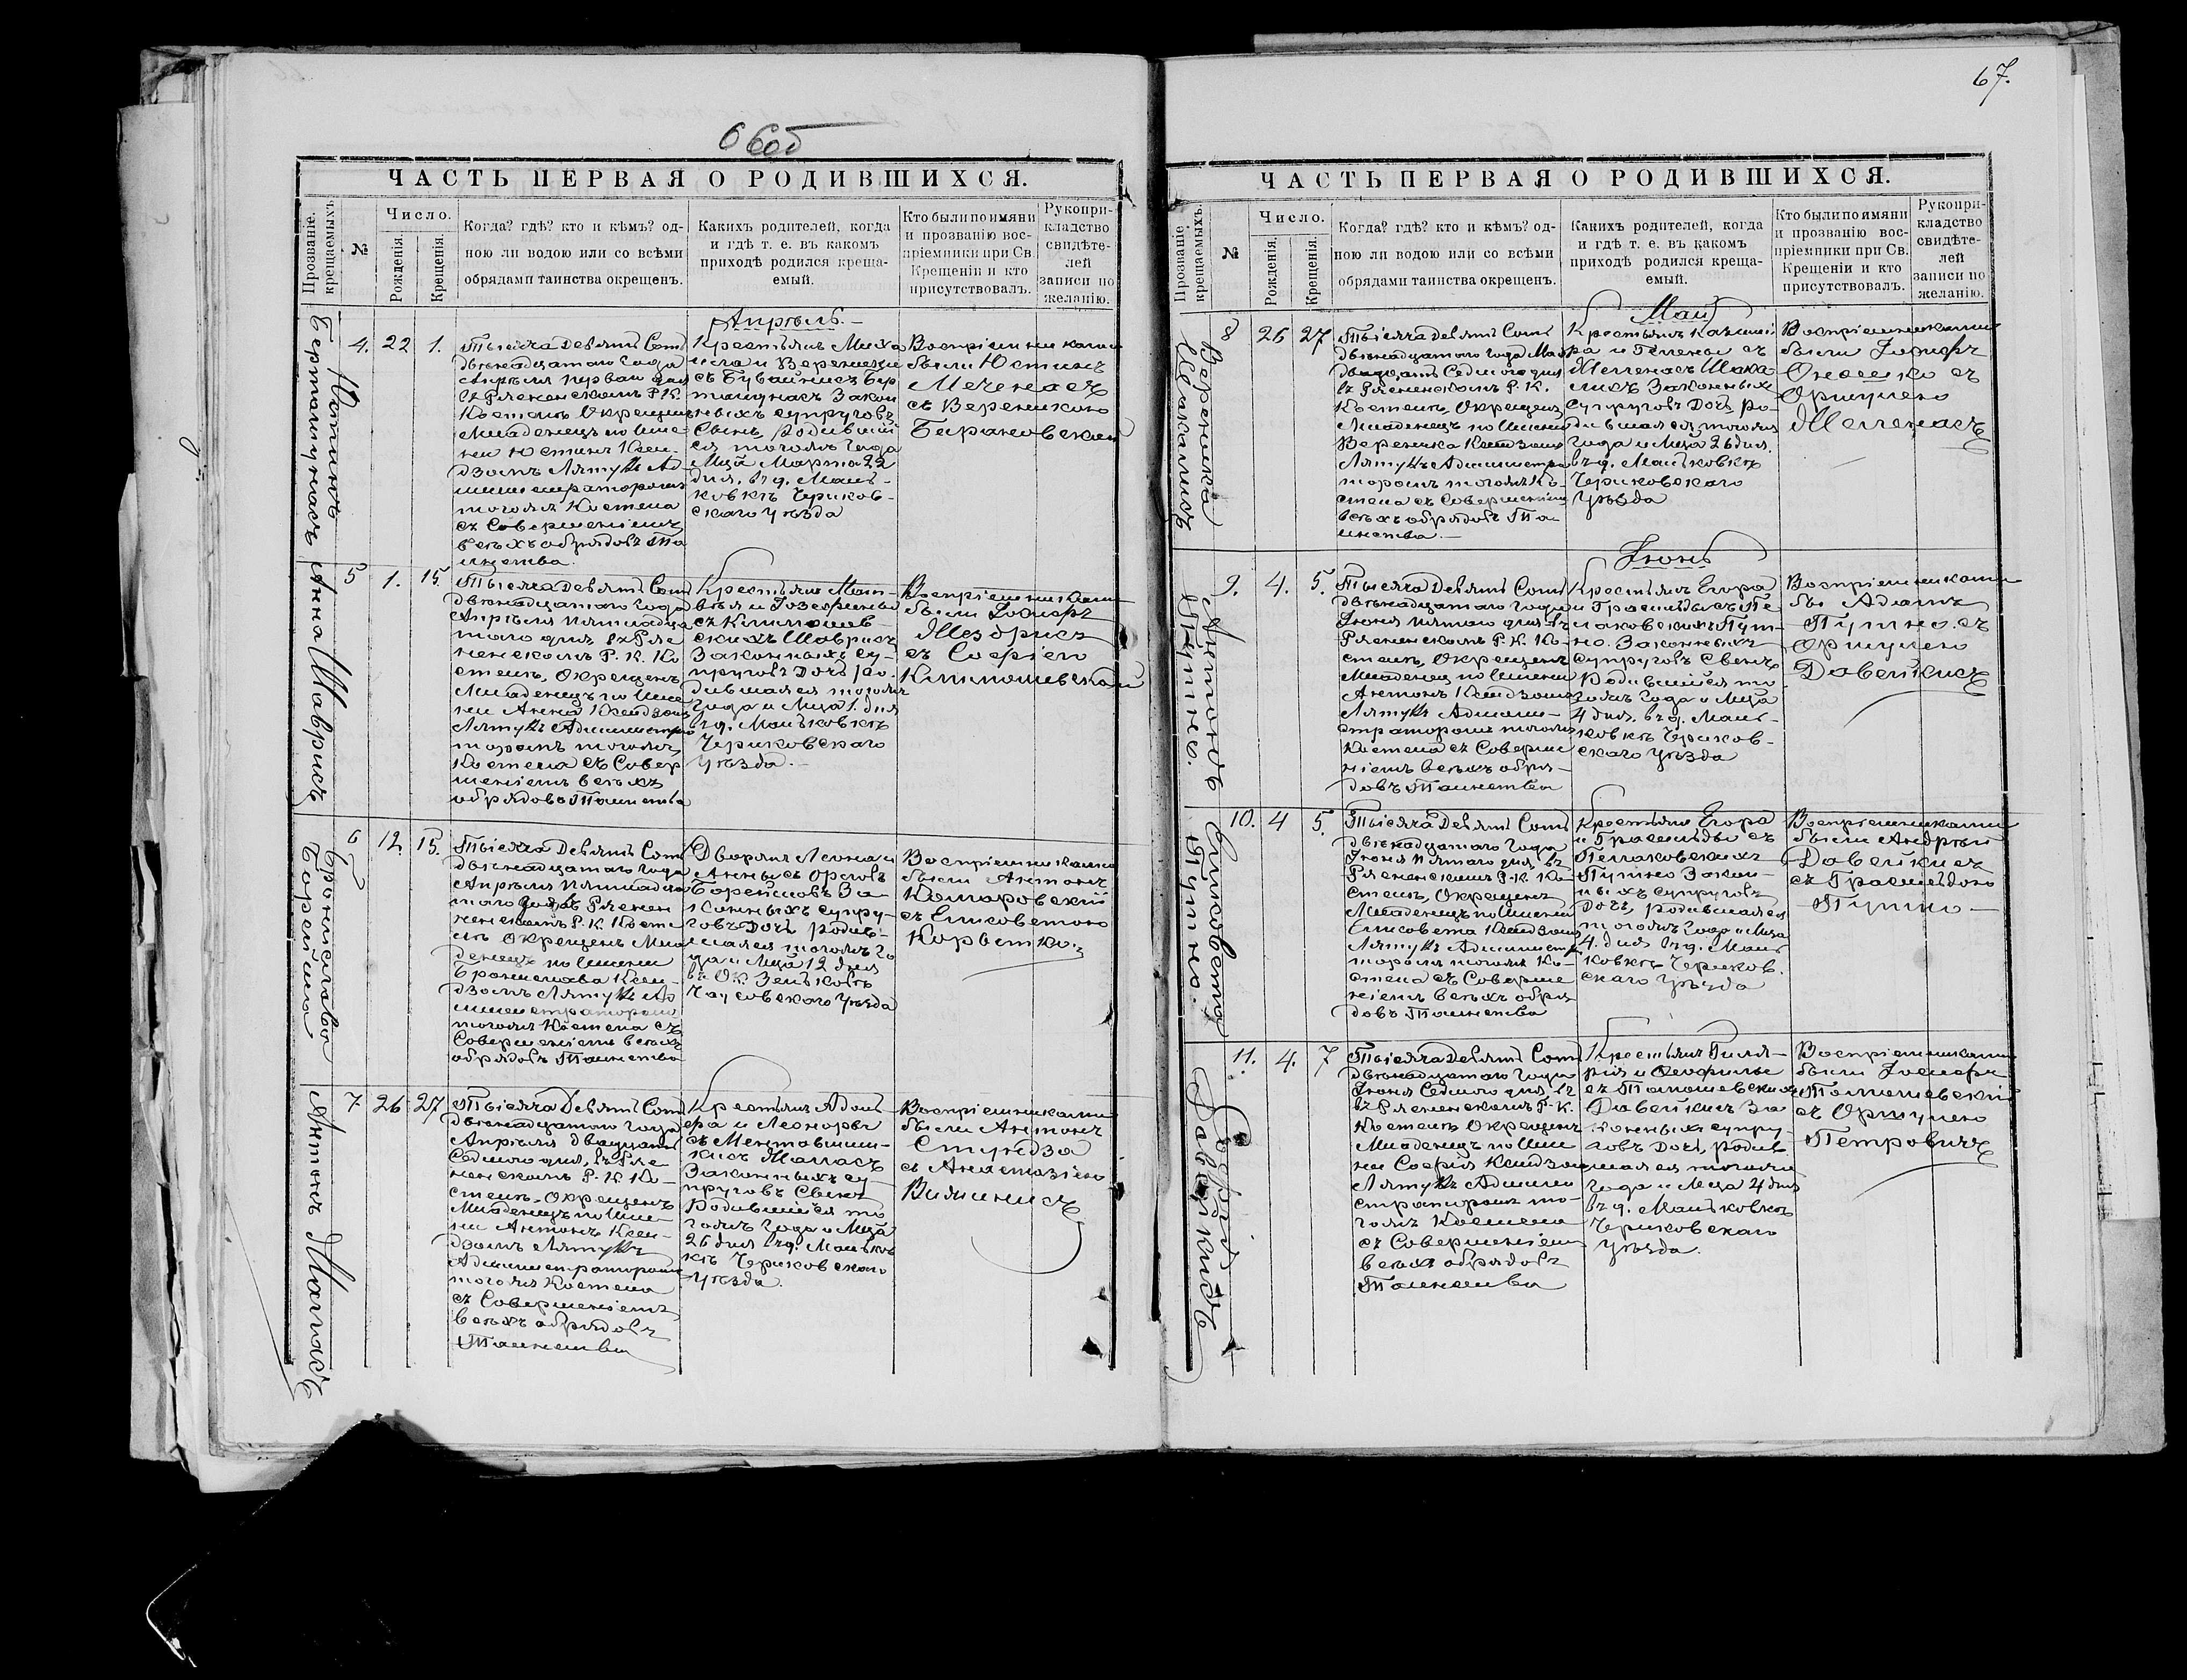 66об
ЧАСТЬ ПЕРВАЯ О РОДИВШИХСЯ.
Прозваніе крещаемыхъ.
№
Число.
Рожденія.
Крещенія.
Когда? гдѣ? кто и кѣмъ? од-
ною ли водою или со всѣми
обрядами таинства окрещенъ.
Какихъ родителей, когда
и гдѣ т. е. въ какомъ
приходѣ родился креща-
емый.
Кто были по имяни
и прозванію вос-
пріемники при Св.
Крещеніи и кто
присутствовалъ.
Рукопри-
кладство
свидѣте-
лей
записи по
желанію.
Апрѣль.
Юстинъ
4. 22 1.
Тысяча Девятьсотъ
двѣнадцатаго Года
Апрѣля перваго дня
въ Рясненскомъ Р.К.
Костелѣ Окрещенъ
Младенецъ по Име-
ни Юстинъ Ксен-
дзомъ Ад-
министраторомъ
тогожъ Костела
съ Совершеніемъ
всѣхъ обрядовъ Та
инства.
Крестьянъ Миха
ила и Вероники
съ
Закон
ныхъ супруговъ
Сынъ, родивший
ся тогожъ Года
Мца Марта 22
дня, въ д. Мань-
ковкѣ Чериков-
скаго уѣзда
Воспріемниками
были Юстинъ
съ Вероникою
Барановской
Анна Шаврисъ
5 1. 15.
Тысяча Девятьсотъ
двѣнадцатаго Года
Апрѣля Пятнадца
таго дня въ Ряс
ненскомъ Р. К. Ко
стелѣ, Окрещенъ
Младенецъ по Име
ни Анна Ксендзомъ
Администра
торомъ тогожъ
Костела съ Совер
шеніемъ всѣхъ
обрядовъ Таинства
Крестьянъ Мат-
вѣя и Іозефины
съ Климашев-
скихъ Шаврисъ
Законныхъ су-
пруговъ Дочь ро-
дившаяся тогожъ
Года и Мца 1. дня
въ д. Маньковкѣ
Чериковскаго
уѣзда.
Воспріемниками
были Іосифъ
съ Софіею
Климашевской
Брониславa
Борейша
6 12. 15.
Тысяча Девятьсотъ
двѣнадцатаго Года
Апрѣля Пятнадца
таго дня въ Ряснен
ненскомъ Р. К. Косте
лѣ Окрещенъ Мла
денецъ по Имени
Бронислава Ксен-
дзомъ Ад
министраторомъ
тогожъ Костела съ
Совершеніемъ всѣхъ
обрядовъ Таинства
Дворянъ Леона и
Анны съ
Борейшовъ За-
конныхъ супру-
говъ Дочь родив-
шаяся тогожъ Го
да и Мца 12 дня
въ Ок.
Чаусовскаго уѣзда
Воспріемниками
были Антонъ
Комаровскій
съ Елисоветою
Антонъ
7 26 27
Тысяча Девятьсотъ
двѣнадцатаго Года
Апрѣля двадцать
Седмого дня, въ Ряс
ненскомъ Р. К. Ко-
стелѣ, Окрещенъ
Младенецъ по Име-
ни Антонъ Ксен-
дзомъ
Администраторомъ
тогожъ Костела
съ Совершеніемъ
всѣхъ обрядовъ
Таинства
Крестьянъ Адоль-
фа и Леоноры
съ
Законныхъ су-
пруговъ Сынъ
Родившійся то
гожъ Года и Мца
26 дня въ д. Маньков
кѣ Чериковскаго
уѣзда.
Воспріемниками
были Антонъ
съ Анастазіею
67.
ЧАСТЬ ПЕРВАЯ О РОДИВШИХСЯ.
Прозваніе крещаемыхъ.
№
Число.
Рожденія.
Крещенія.
Когда? гдѣ? кто и кѣмъ? од-
ною ли водою или со всѣми
обрядами таинства окрещенъ.
Какихъ родителей, когда
и гдѣ т. е. въ какомъ
приходѣ родился креща-
емый.
Кто были по имяни
и прозванію вос-
пріемники при Св.
Крещеніи и кто
присутствовалъ.
Рукопри-
кладство
свидѣте-
лей
записи по
желанію.
Май
Вероника
Шакалисъ
8 26 27
Тысяча Девятьсотъ
двѣнадцатаго Года Мая
двадцать Седмого дня
въ Рясненскомъ Р. К.
Костелѣ, Окрещенъ
Младенецъ по Имени
Вероника Ксендзомъ
Администра
торомъ тогожъ Ко-
стела съ Совершеніемъ
всѣхъ обрядовъ Та
инства.
Крестьянъ Казими
ра и Гелены съ
Шака
лисъ Законныхъ
Супруговъ Дочь ро-
дившаяся, тогожъ
Года и Мца 26 дня.
въ д. Маньковкѣ
Чериковскаго
уѣзда
Воспріемниками
были Іосифъ
съ
Июнь
Антонъ
Путно.
9. 4. 5.
Тысяча Девятьсотъ
двѣнадцатаго Года
Іюня пятого дня въ
Рясненскомъ Р. К. Ко-
стелѣ, Окрещенъ
Младенецъ по Имени
Антонъ Ксендзомъ
Админи-
страторомъ тогожъ
Костела съ Соверше
ніемъ всѣхъ обря-
довъ Таинства
Крестьянъ Егора
Пут-
но. Законныхъ
Супруговъ Сынъ
Родившійся то
гожъ Года и Мца
4 дня. въ д. Мань-
ковкѣ Чериков-
скаго уѣзда
Воспріемниками
бы Адамъ
Путно. съ
Довейкисъ
Елисовета
Путно.
10. 4 5.
Тысяча Девятьсотъ
двѣнадцатаго Года
Іюня Пятаго дня въ
Рясненскомъ Р. К. Ко-
стелѣ, Окрещенъ
Младенецъ по Имени
Елисовета Ксендзомъ
Администр
торомъ тогожъ Ко-
стела съ Соверше
ніемъ всѣхъ обря
довъ Таинства
Крестьянъ Егора
съ
Путно Закон-
ныхъ супруговъ
Дочь, родившаяся
тогожъ Года и Мца
4. дня въ д. Мань
ковкѣ Чериков.
скаго уѣзда
Воспріемниками
были Андрей
Довейкисъ
съ
Путно
Софія
Довейкисъ
11. 4. 7
Тысяча Девятьсотъ
двѣнадцатаго Года
Іюня Седмого дня въ
въ Рясненскомъ Р. К.
Костелѣ Окрещенъ
Младенецъ по Име
ни Софія Ксендзомъ
Админи
страторомъ то-
гожъ Костела
съ Совершеніемъ
всѣхъ обрядовъ
Таинства
Крестьянъ Гиля-
рія и Теофили
съ Томашевскихъ
Довейкисъ За
конныхъ супру-
говъ Дочь, родив
шаяся тогожъ
Года и Мца 4 дня
въ д. Маньковкѣ
Чериковскаго
уѣзда.
Воспріемниками
были Іосифъ
Томашевскій
съ
Петровичъ